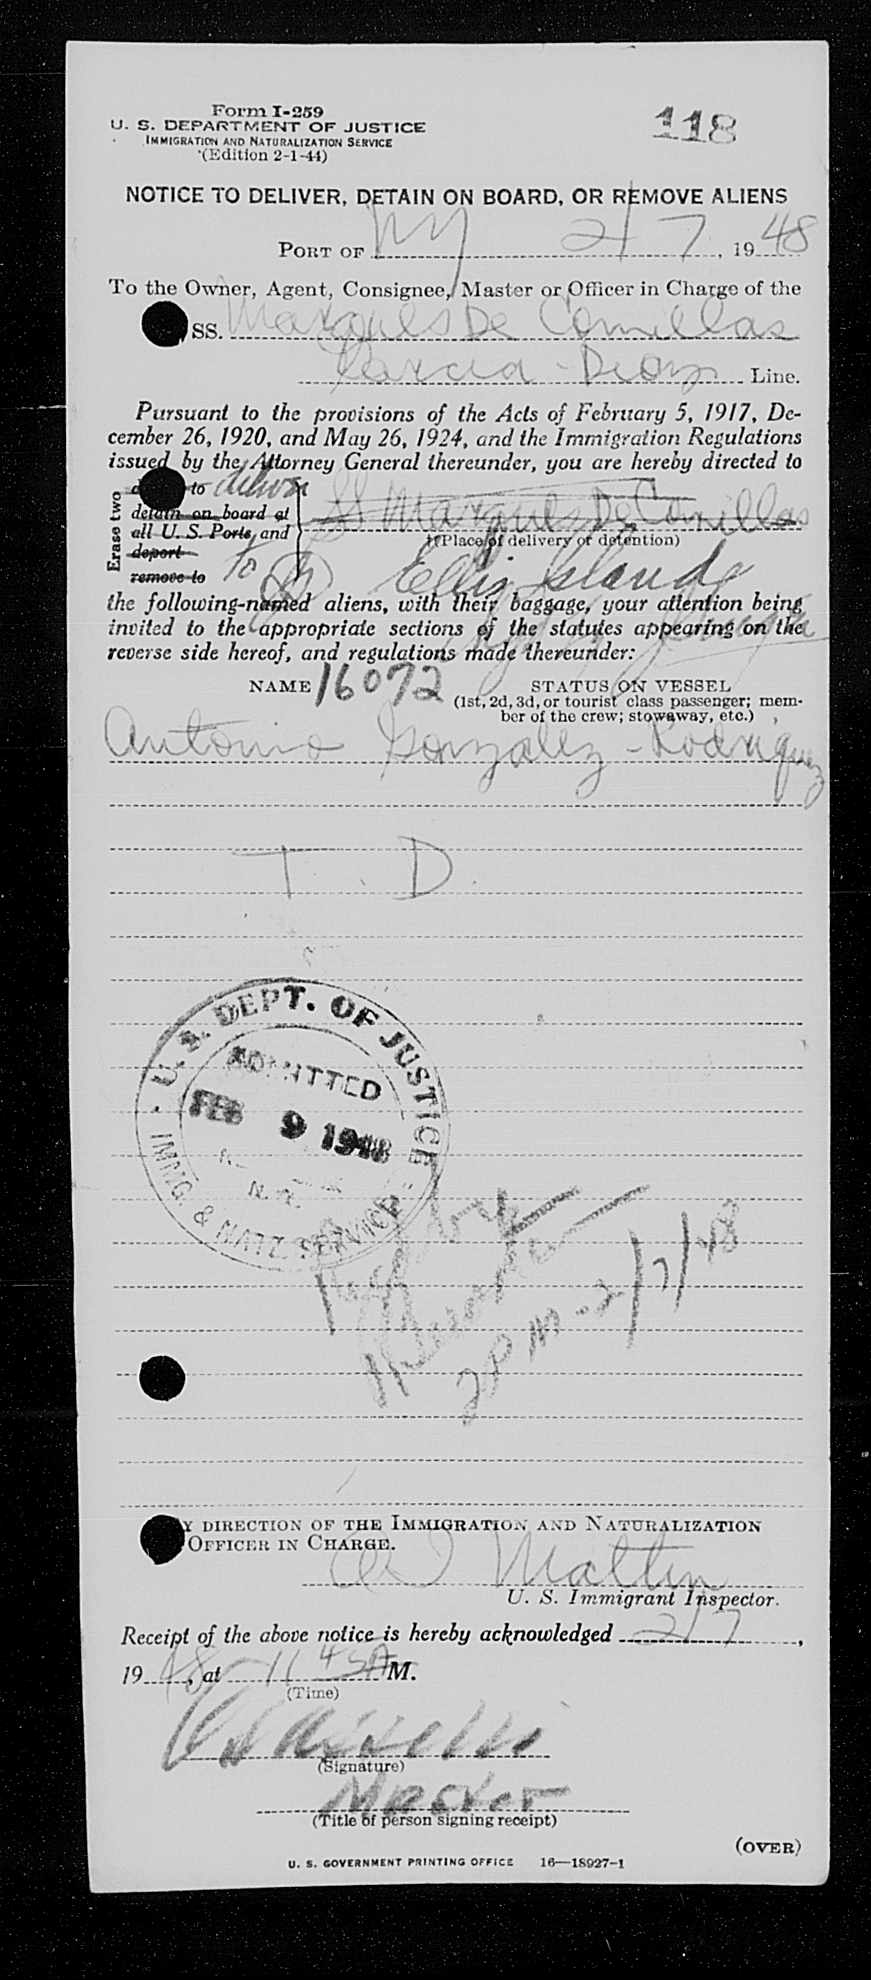 Form I-259
U. S. DEPARTMENT OF JUSTICE
IMMIGRATION AND NATURALIZATION SERVICE
(Edition 2-1-44)
118
NOTICE TO DELIVER, DETAIN ON BOARD, OR REMOVE ALIENS
PORT OF NY 2/7, 1948
To the Owner, Agent, Consignee, Master or Officer in Charge of the
SS. Marques De Comillas
Garcia - Diaz Line.
Pursuant to the provisions of the Acts of February 5, 1917, De-
cember 26, 1920, and May 26, 1924, and the Immigration Regulations
issued by the Attorney General thereunder, you are hereby directed to
Erase two
to deliver
detain on board at
all U. S. Ports, and
deport
remove to
SS Marques De Comillas
(Place of delivery or detention)
To Ellis Island
the following-named aliens, with their baggage, your attention being
invited to the appropriate sections of the statutes appearing on the
reverse side hereof, and regulations made thereunder:
NAME 16072
STATUS ON VESSEL
(1st, 2d, 3d, or tourist class passenger; mem-
ber of the crew; stowaway, etc.)
Antonio Gonzalez - Rodriguez
T. D.
U. S. DEPT. OF JUSTICE
ADMITTED
FEB 9 1948
N. Y.
IMMG. & NATZ. SERVICE
2 PM - 2/7/48
BY DIRECTION OF THE IMMIGRATION AND NATURALIZATION
OFFICER IN CHARGE.
U. S. Immigrant Inspector.
Receipt of the above notice is hereby acknowledged 2/7,
1948, at 11 45 A M.
(Time)
(Signature)
Master
(Title of person signing receipt)
(OVER)
U. S. GOVERNMENT PRINTING OFFICE 16—18927-1